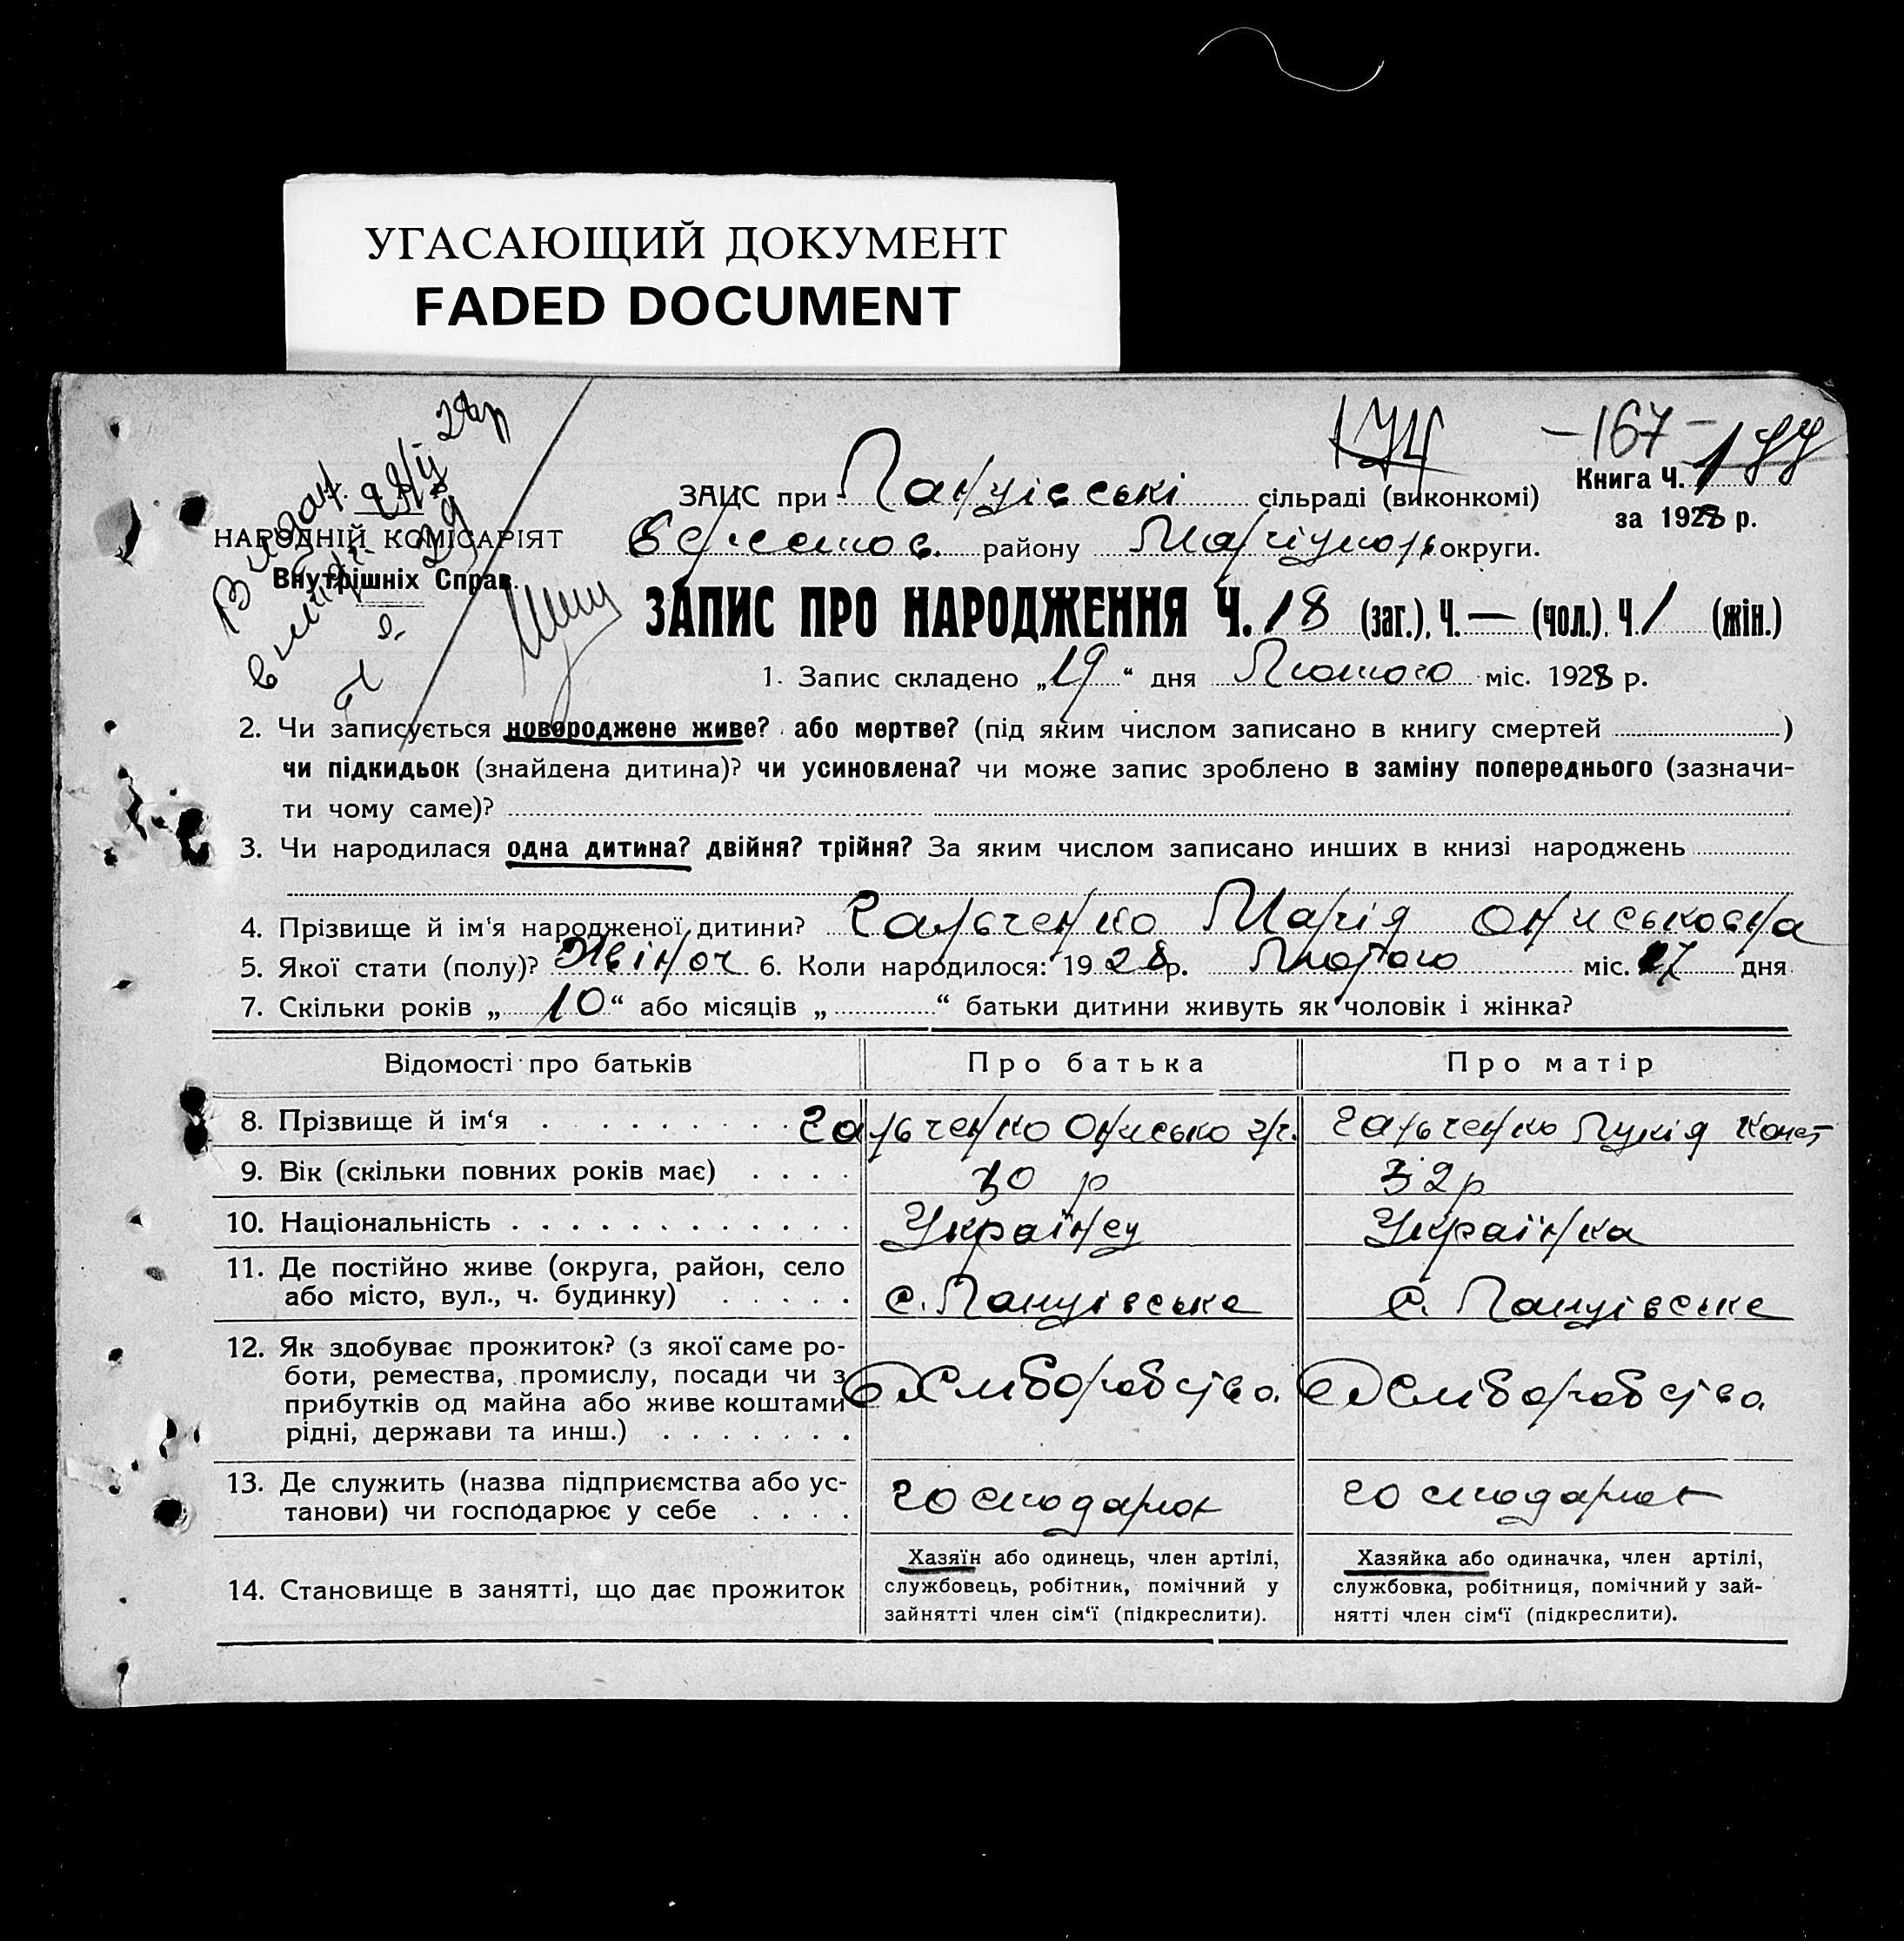 УГАСАЮЩИЙ ДОКУМЕНТ
FADED DOCUMENT
174
-167-
Книга Ч. 177
за 1928 р.
ЗАЦС при сільраді (виконкомі)
НАРОДНІЙ КОМІСАРІЯТ
Внутрішніх Справ.
району Маріуполь округи.
ЗАПИС ПРО НАРОДЖЕННЯ Ч. 18 (заг.), Ч. — (чол.), Ч. 1 (жін.)
1. Запис складено „19“ дня Лютого міс. 1928 р.
2. Чи записується новороджене живе? або мертве? (під яким числом записано в книгу смертей )
чи підкидьок (знайдена дитина)? чи усиновлена? чи може запис зроблено в заміну попереднього (зазначи-
ти чому саме)?
3. Чи народилася одна дитина? двійня? трійня? За яким числом записано инших в книзі народжень
4. Прізвище й ім'я народженої дитини? Гальченко Марія Ониськовна
5. Якої стати (полу)? Жіноч 6. Коли народилося: 1928 р. Лютого міс. 17 дня
7. Скільки років „10“ або місяців „ “ батьки дитини живуть як чоловік і жінка?
Відомості про батьків Про батька Про матір
8. Прізвище й ім'я Гальченко Онисько Гр. Гальченко Лукія Конст
9. Вік (скільки повних років має) 30 р 32 р
10. Національність Українец Українка
11. Де постійно живе (округа, район, село
або місто, вул., ч. будинку)
12. Як здобуває прожиток? (з якої саме ро-
боти, ремества, промислу, посади чи з
прибутків од майна або живе коштами
рідні, держави та инш.) Хліборобство Хліборобство
13. Де служить (назва підприємства або ус-
танови) чи господарює у себе
14. Становище в занятті, що дає прожиток
Хазяїн або одинець, член артілі,
службовець, робітник, помічний у
зайнятті член сім'ї (підкреслити).
Хазяйка або одиначка, член артілі,
службовка, робітниця, помічний у зай-
нятті член сім'ї (підкреслити).